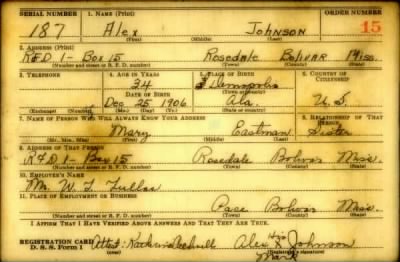 SERIAL NUMBER 1. NAME (Print) ORDER NUMBER
187 Alex Johnson 15
(First) (Middle) (Last)
2. ADDRESS (Print)
RFD 1- Box 15 Rosedale Bolivar Miss.
(Number and street or R. F. D. number) (Town) (County) (State)
3. TELEPHONE 4. AGE IN YEARS 5. PLACE OF BIRTH 6. COUNTRY OF CITIZENSHIP
34 Demopolis
DATE OF BIRTH (Town or county)
Dec 25, 1906 Ala. U. S.
(Exchange) (Number) (Mo.) (Day) (Yr.) (State or country)
7. NAME OF PERSON WHO WILL ALWAYS KNOW YOUR ADDRESS 8. RELATIONSHIP OF THAT PERSON
Mary Eastman Sister
(Mr., Mrs., Miss) (First) (Middle) (Last)
9. ADDRESS OF THAT PERSON
RFD 1- Box 15 Rosedale Bolivar Miss.
(Number and street or R. F. D. number) (Town) (County) (State)
10. EMPLOYER'S NAME
Mr. W. L. Fuller
11. PLACE OF EMPLOYMENT OR BUSINESS
Pace Bolivar Miss.
(Number and street or R. F. D. number) (Town) (County) (State)
I AFFIRM THAT I HAVE VERIFIED ABOVE ANSWERS AND THAT THEY ARE TRUE.
REGISTRATION CARD Attest: Alex his X Johnson
D. S. S. Form 1 (Registrant's signature) Mark